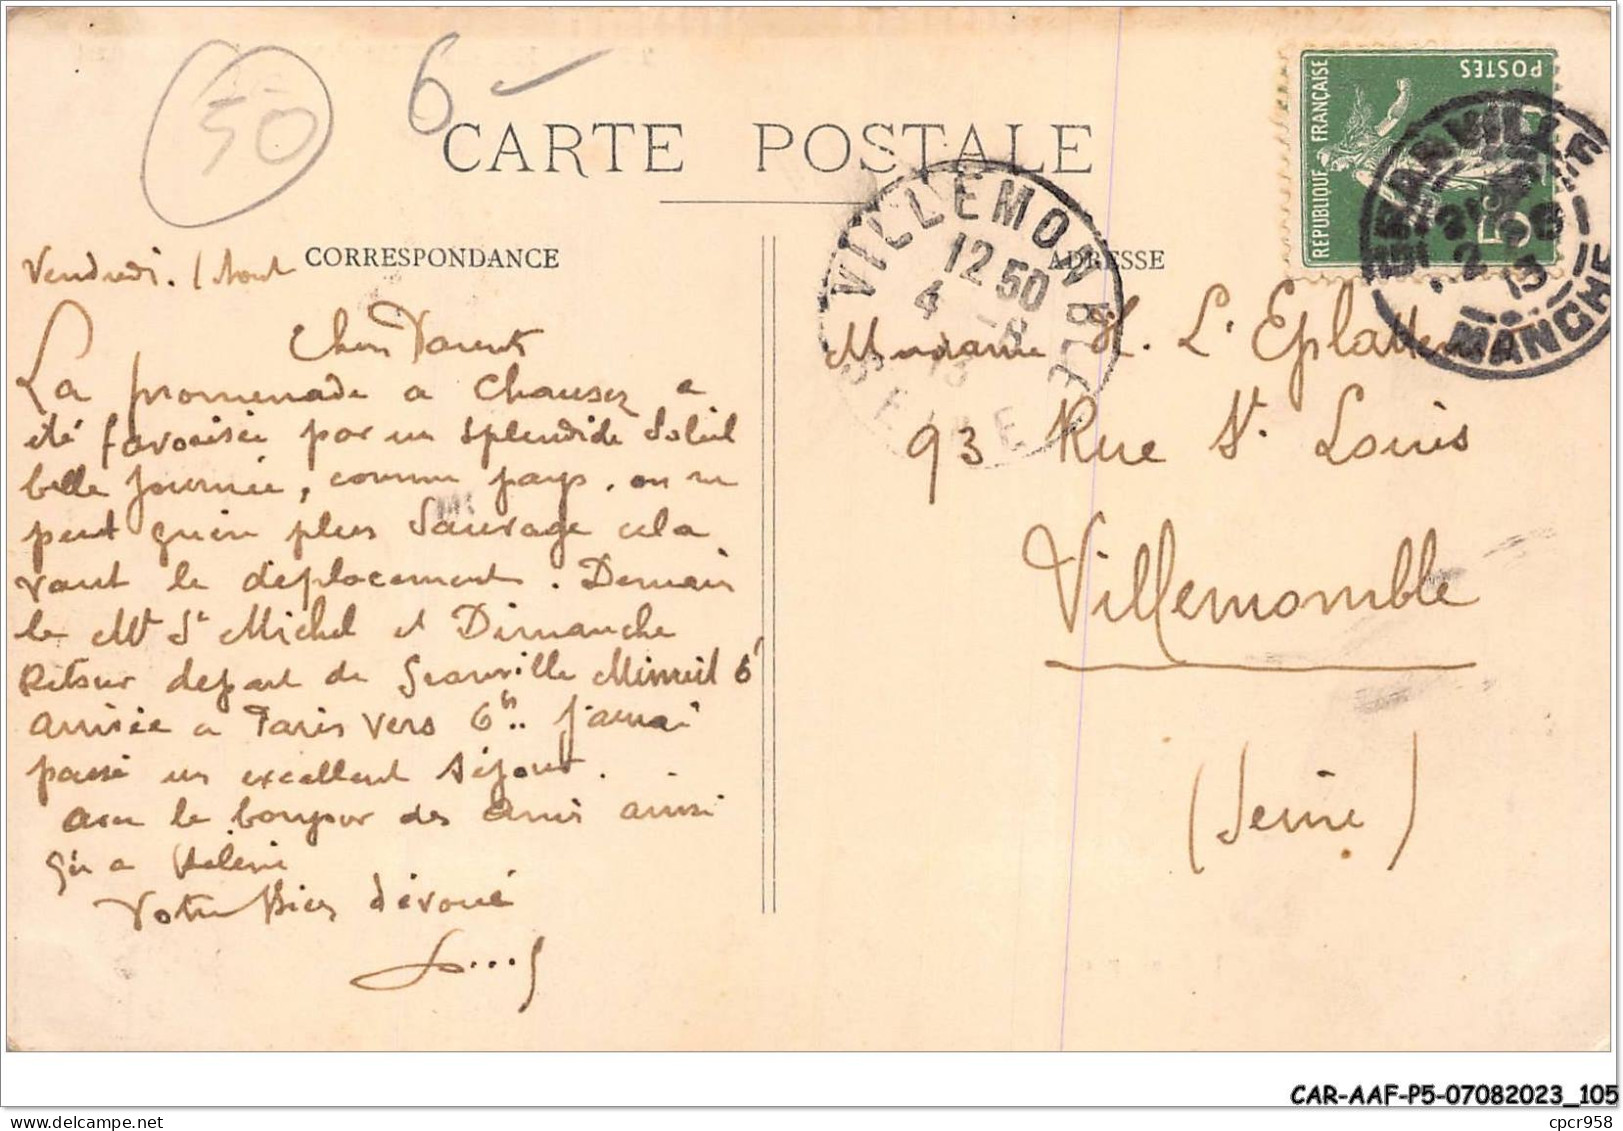 50
6
CARTE POSTALE
CORRESPONDANCE
ADRESSE
RÉPUBLIQUE FRANÇAISE
POSTES
5
VILLEMOMBLE
12 50
4 -8
13
SEINE
MANCHE
13
Vendredi. 1 Aout
Chers Parents
La promenade a Chausey a
été favorisée par un splendide Soleil
belle journée, comme pays, on ne
peut guere plus Sauvage cela
vaut le deplacement. Demain
le Mt St Michel et Dimanche
Retour depart de Granville Minuit 6'
arrivée a Paris vers 6h.. J'aurai
passé un excellent séjour.
le bonjour des Amis ainsi
qu'a Helene
Votre Bien dévoué
Madame H. L'Eplattenier
93 Rue St. Louis
Villemomble
(Seine)
CAR-AAF-P5-07082023_105
cpcr958